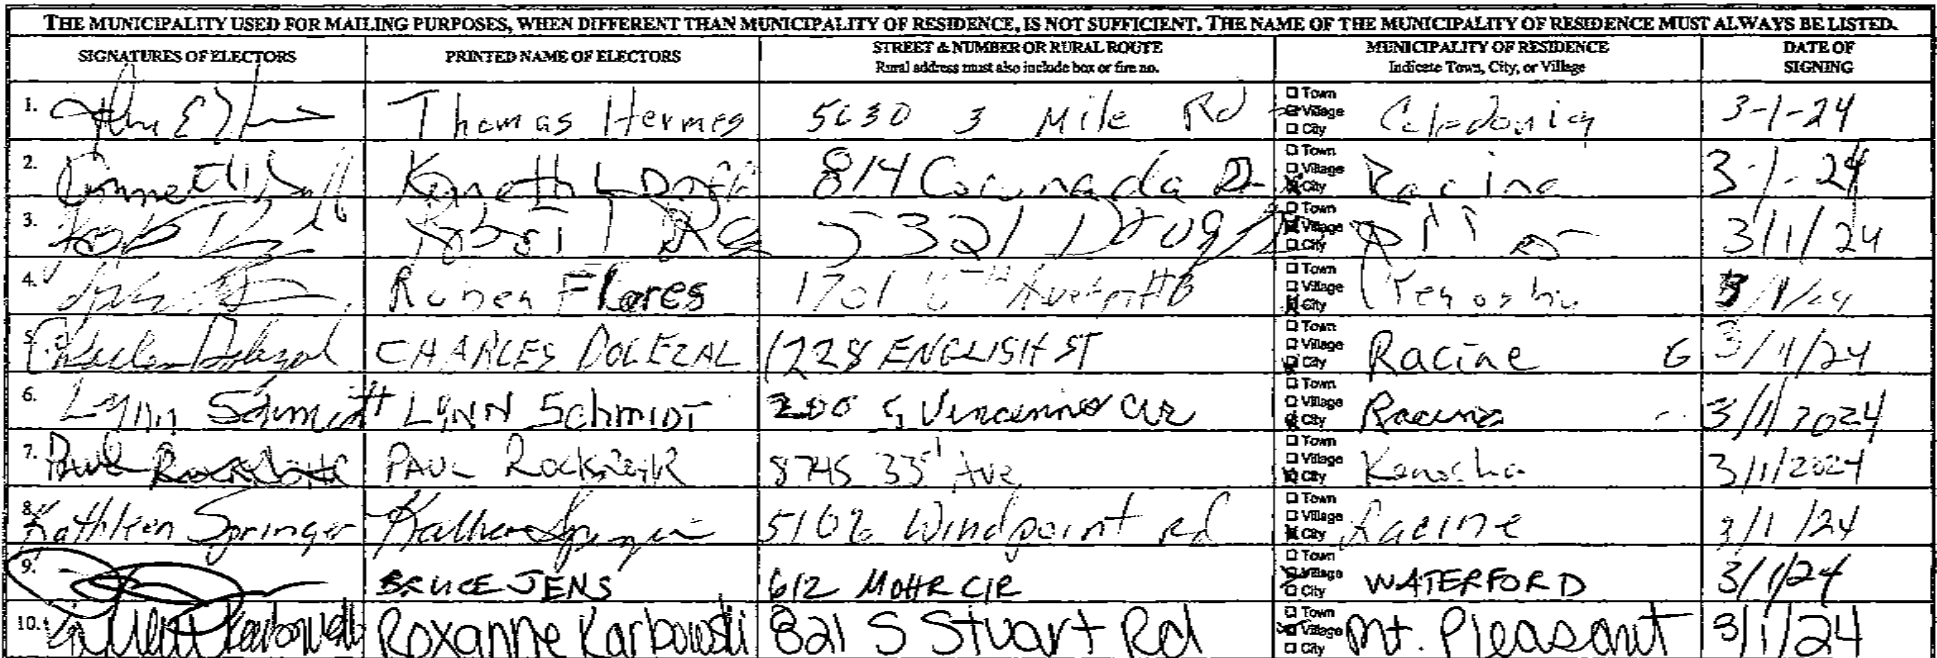 THE MUNICIPALITY USED FOR MAILING PURPOSES, WHEN DIFFERENT THAN MUNICIPALITY OF RESIDENCE, IS NOT SUFFICIENT. THE NAME OF THE MUNICIPALITY OF RESIDENCE MUST ALWAYS BE LISTED.
SIGNATURES OF ELECTORS PRINTED NAME OF ELECTORS STREET & NUMBER OR RURAL ROUTE MUNICIPALITY OF RESIDENCE DATE OF
Rural address must also include box or fire no. Indicate Town, City, or Village SIGNING
1. Thomas Hermes 5630 3 Mile Rd Town Village City Caledonia 3-1-24
2. Kenneth L 814 Town Village City Racine 3-1-24
3. 5321 Town Village City 3/1/24
4. Ruben Flores 1701 Town Village City Kenosha 3/1/24
5. Charles Dolezal CHARLES DOLEZAL 1228 ENGLISH ST Town Village City Racine 3/1/24
6. Lynn Schmidt LYNN SchmiDT 200 S Vincennes Cir Town Village City Racine 3/1/2024
7. Paul PAUL 8745 33 Ave Town Village City Kenosha 3/1/2024
8. Kathleen Springer Kathleen Springer 5106 Windpoint rd Town Village City Racine 3/1/24
9. BRUCE JENS 612 MOHR CIR Town Village City WATERFORD 3/1/24
10. Karbowski Roxanne Karbowski 821 S Stuart Rd Town Village City Mt. Pleasant 3/1/24